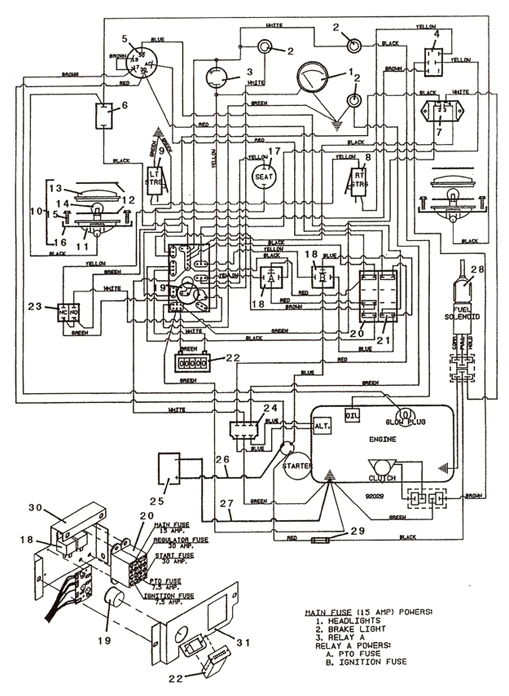 WHITE
2
YELLOW
5
BLUE
2
BLACK
4
YELLOW
BROWN
BROWN
17
RED
3
WHITE
1
2
BROWN
GREEN
BLACK
WHITE
6
RED
7
BLACK
GREEN
GREEN
9
YELLOW
YELLOW
17
BLACK
8
BLACK
LT
STRG
SEAT
RT
STRG
13
14
12
10
15
16
11
BLACK
YELLOW
GREEN
WHITE
23
NC
NO
GREEN
19
BLACK
YELLOW
YELLOW
BLACK
18
BLUE
18
RED
RED
20
21
28
FUEL
SOLENOID
COM
PULL
HOLD
GREEN
BLACK
BLUE
WHITE
GREEN
00000
22
RED
BLUE
GREEN
GREEN
WHITE
24
BLUE
BLUE
ALT.
OIL
GLOW PLUG
ENGINE
CLUTCH
92029
STARTER
26
25
27
GREEN
GREEN
BROWN
RED
29
BLACK
30
18
20
MAIN FUSE
15 AMP.
REGULATOR FUSE
30 AMP.
START FUSE
30 AMP.
PTO FUSE
7.5 AMP.
IGNITION FUSE
7.5 AMP.
19
31
22
MAIN FUSE (15 AMP) POWERS:
1. HEADLIGHTS
2. BRAKE LIGHT
3. RELAY A
RELAY A POWERS:
A. PTO FUSE
B. IGNITION FUSE